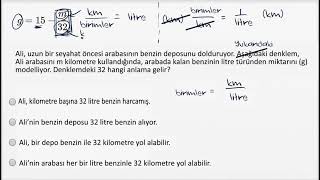 g = 15 - m/32 km/birimler = litre
(km) birimler/(km) = 1/litre (km)
yukarıdaki
Ali, uzun bir seyahat öncesi arabasının benzin deposunu dolduruyor. Aşağıdaki denklem,
Ali arabasını m kilometre kullandığında, arabada kalan benzinin litre türünden miktarını (g)
modelliyor. Denklemdeki 32 hangi anlama gelir?
birimler = km/litre
Ali, kilometre başına 32 litre benzin harcamış.
Ali'nin benzin deposu 32 litre benzin alıyor.
Ali, bir depo benzin ile 32 kilometre yol alabilir.
Ali'nin arabası her bir litre benzinle 32 kilometre yol alabilir.